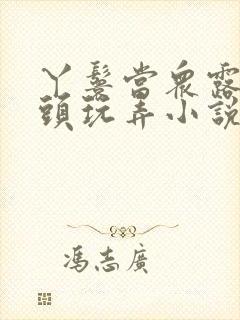 丫鬟當眾露
頭玩弄小說
馮志廣